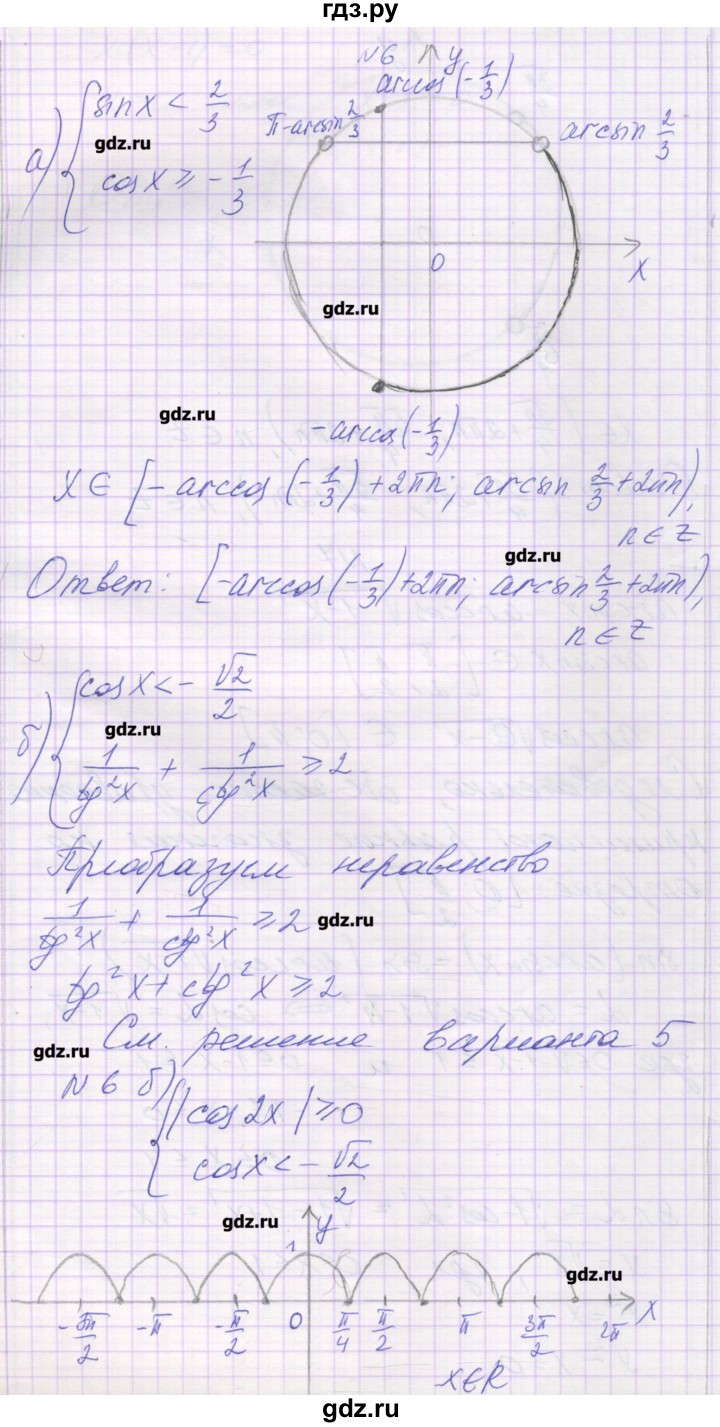 гдз.ру
N6
y
arccos(-1/3)
а) { sin x < 2/3
π-arcsin 2/3
arcsin 2/3
gdz.ru
cos x ≥ -1/3
0
x
gdz.ru
gdz.ru
-arccos(-1/3)
x ∈ [-arccos(-1/3)+2πn; arcsin 2/3+2πn),
n ∈ Z
gdz.ru
Ответ: [-arccos(-1/3)+2πn; arcsin 2/3+2πn),
n ∈ Z
б) { cos x < -√2/2
gdz.ru
1/tg²x + 1/ctg²x ≥ 2
Преобразуем неравенство
1/tg²x + 1/ctg²x ≥ 2
gdz.ru
tg²x + ctg²x ≥ 2
См. решение варианта 5
gdz.ru
N 6 б)
{ |cos 2x| ≥ 0
cos x < -√2/2
gdz.ru
y
1
gdz.ru
-3π/2 -π -π/2 0 π/4 π/2 π 3π/2 2π x
x∈R
gdz.ru